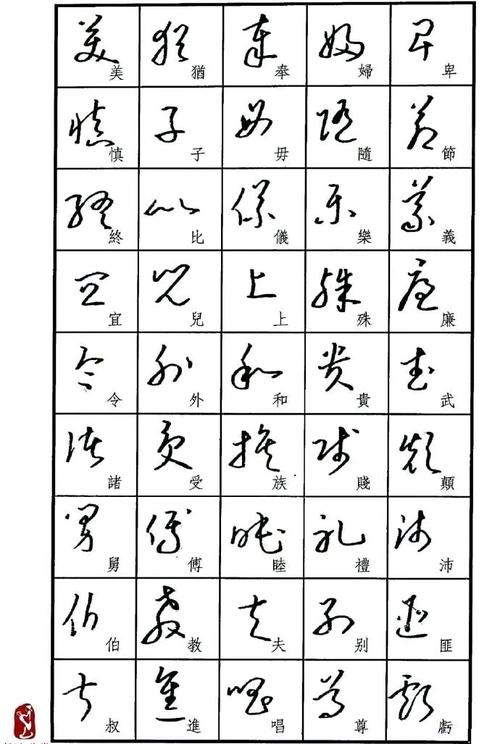 卑節義廉武顛沛匪虧
婦隨樂殊貴賤禮别尊
奉毋儀上和族睦夫唱
猶子比兒外受傅教進
美慎終宜令諸舅伯叔